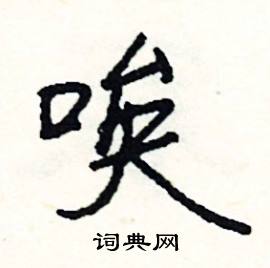 唉
词典网